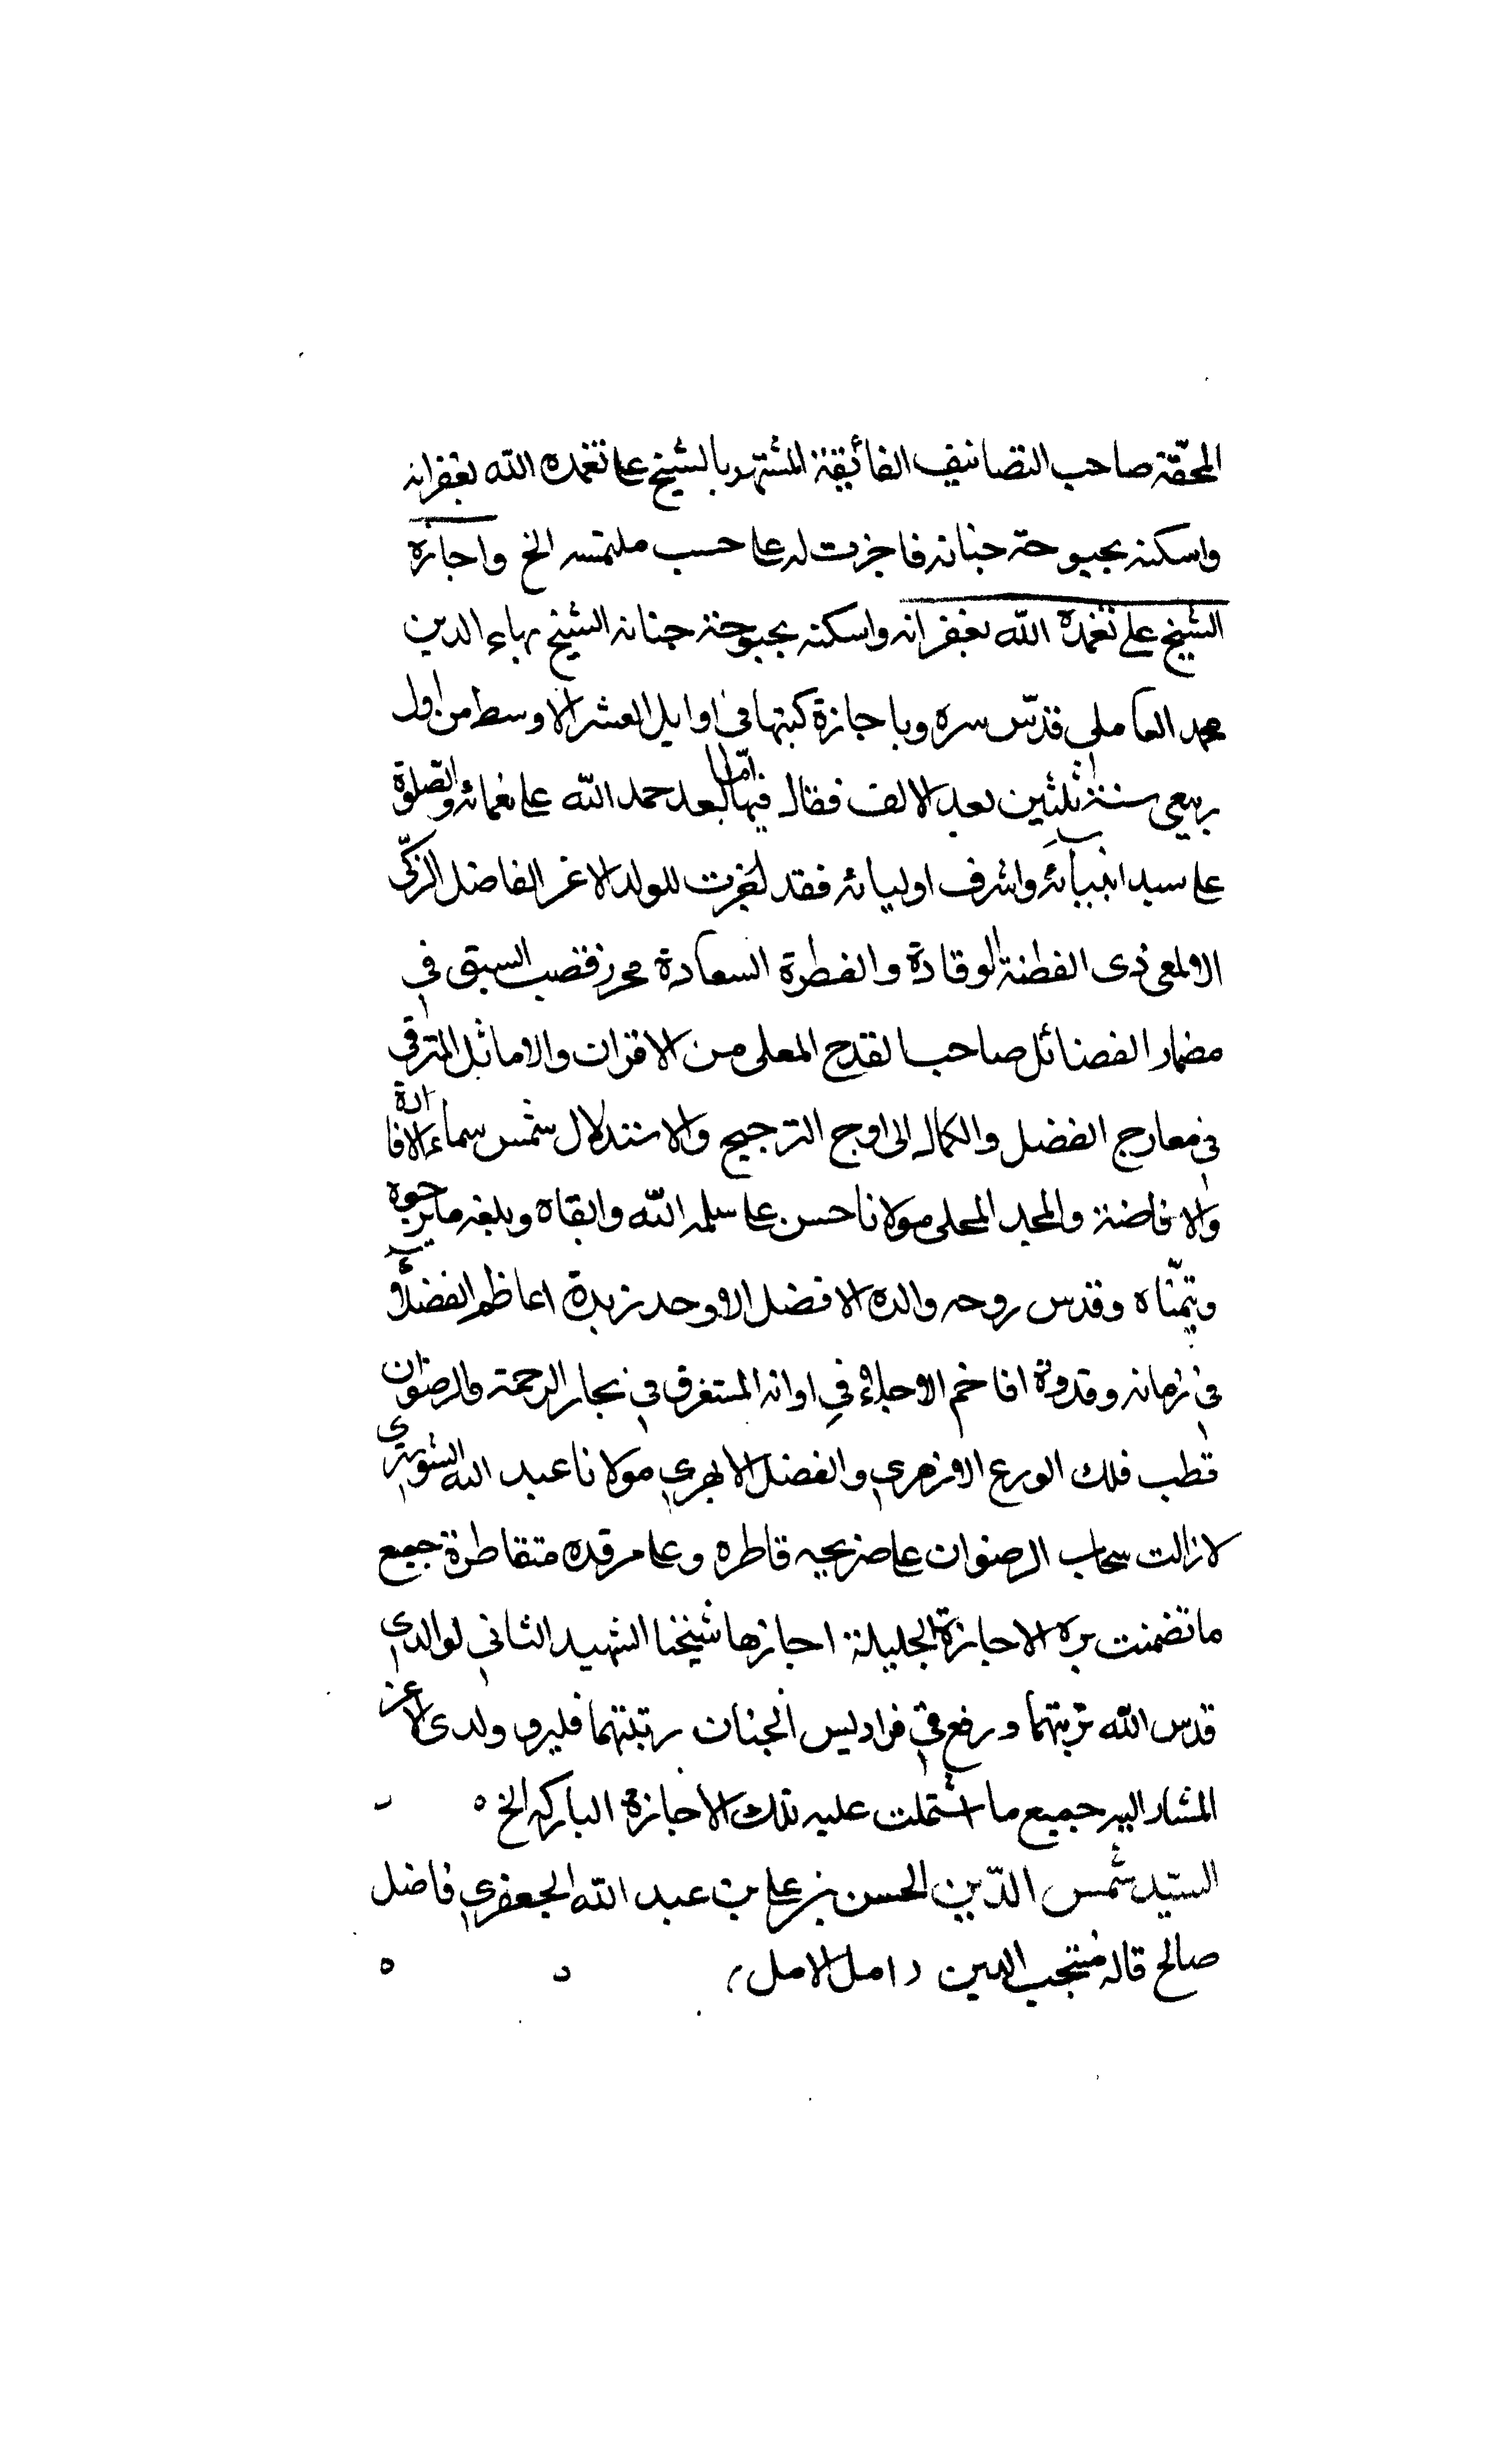 المحقّة صاحب التصانيف الفائيقة المشتهر بالشيخ على تغمده الله بغفرانه
واسكنه بحبوحة جنانه فاجزت له على حسب ملتمسه الخ واجازه
الشيخ على تغمده الله بغفرانه واسكنه بحبوحة جنانه الشيخ بهاء الدين
محمد العاملي قدّس سره وباجازة كتبها في اوايل العشر الاوسط من اول
ربيعى سنة ثلثين بعد الالف فقال فيها امّا بعد حمد الله على نعمائه والصلوة
على سيد انبيائه واشرف اوليائه فقد اجزت للولد الاغر الفاضل الزكّى
الالمعى ذى الفطنة الوقادة والفطرة السعادة محرز قصب السبق في
مضمار الفضائل صاحب القدح المعلى من الاقران والاماثل المترقى
في معارج الفضل والكمال الى اوج الترجيح والاستدلال شمس سماء الافادة
والافاضة والمجد المحلى مولانا حسن على سلمه الله وابقاه وبلغه مايرجوه
ويتمنّاه وقدس روحه والده الافضل الاوحد زبدة اعاظم الفضلاء
في زمانه وقدوة افاخم الاجلاء في اوانه المستغرق في بحار الرحمة والرضوان
قطب فلك الورع الازهري والفضل الابهري مولانا عبد الله الشوشتري
لازالت سحاب الرضوان على ضريحه قاطره وعلى مرقده متقاطرة جميع
ماتضمنت بره الاجازة الجليلة اجازها شيخنا الشهيد الثاني لوالدى
قدس الله تربتهما ورفع في فراديس الجنان رتبتهما فليرو ولدى الاعز
المشار اليه جميع ما اشتملت عليه تلك الاجازة الباركه الخ ه
السيّد شمس الدّين الحسن بن على بن عبد الله الجعفري فاضل
صالح قاله منتجب الدين ( امل الامل )